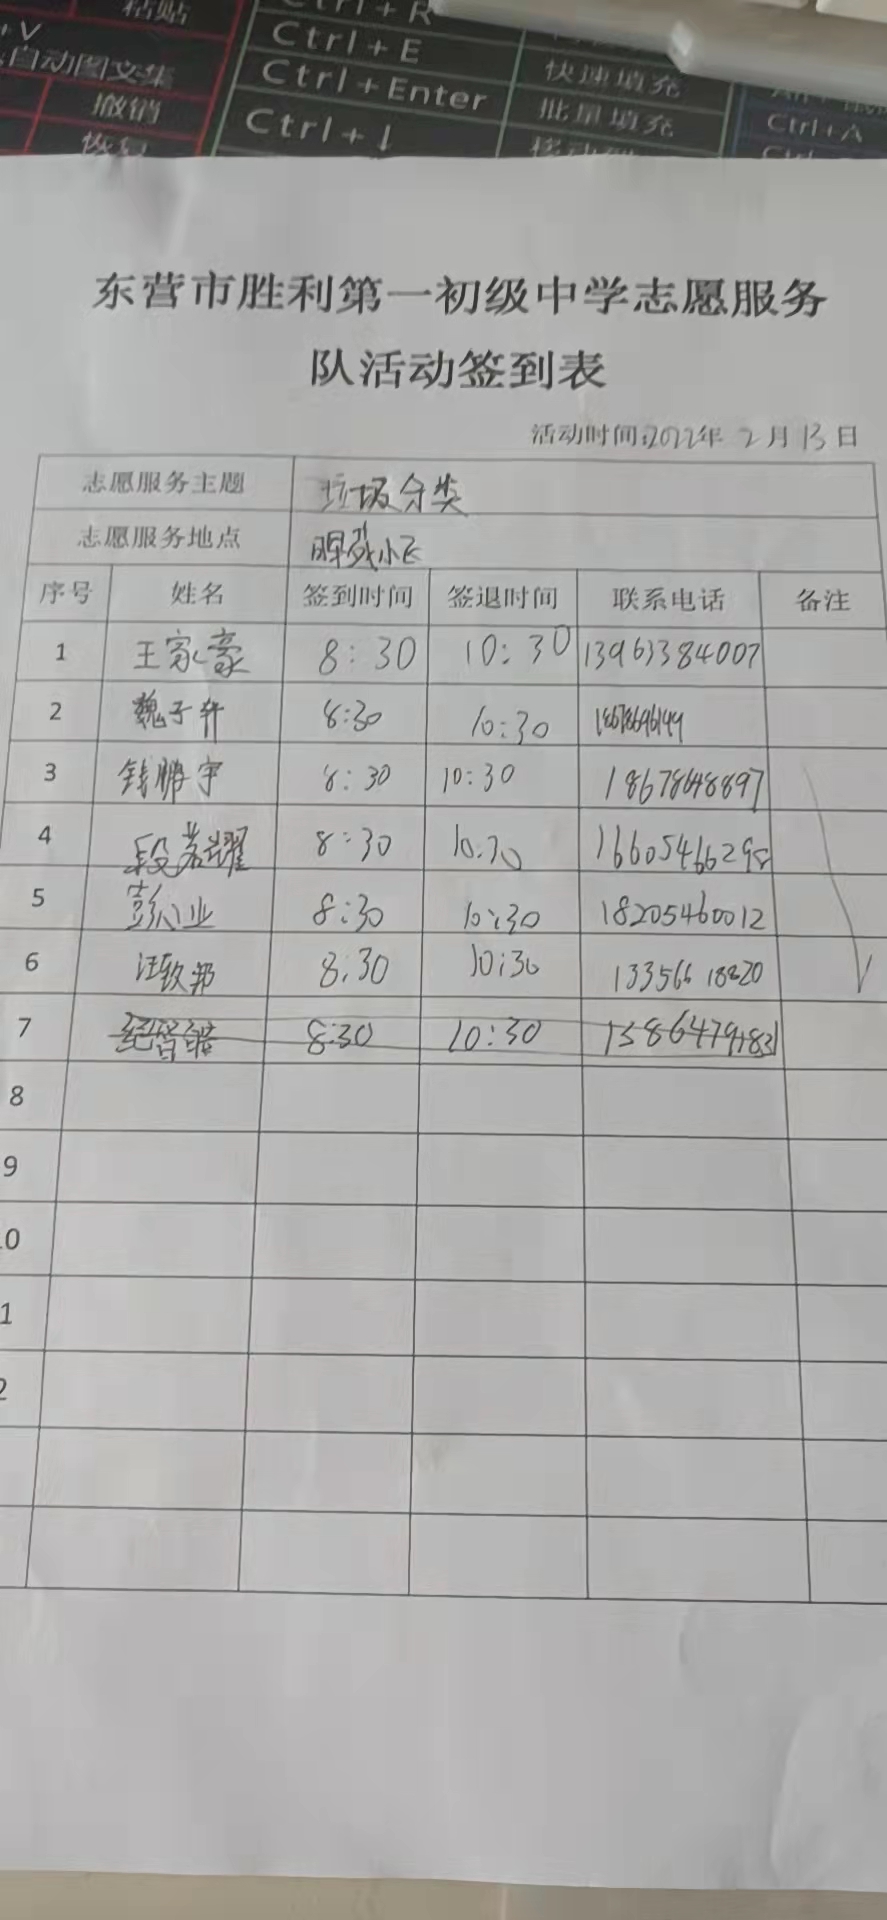 粘贴
Ctrl+R
+V
Ctrl+E
快速填充
自动图文集
Ctrl+Enter
批量填充
撤销
Ctrl+A
恢复
东营市胜利第一初级中学志愿服务
队活动签到表
活动时间:2022年 2月 13日
志愿服务主题 垃圾分类
志愿服务地点
序号 姓名 签到时间 签退时间 联系电话 备注
1 王家豪 8:30 10:30 13963384007
2 魏子轩 8:30 10:30
3 钱鹏宇 8:30 10:30 18678648897
4 段若耀 8:30 10:30 16605466298
5 8:30 10:30 18205460012
6 汪钦邦 8:30 10:30 13356618820
7 8:30 10:30
8
9
.0
1
2